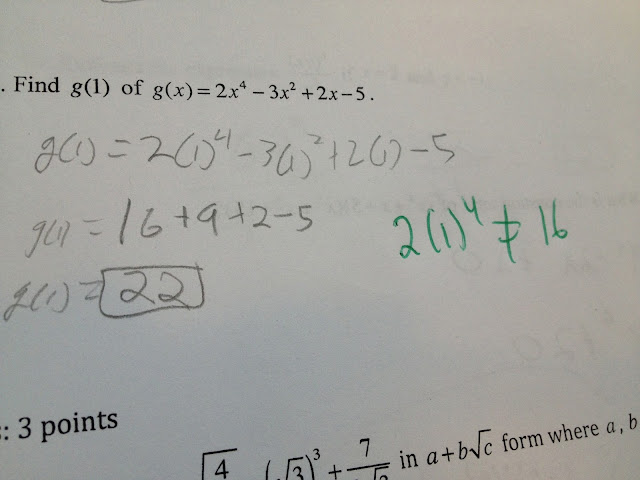 . Find g(1) of g(x)=2x⁴−3x²+2x−5.
g(1) = 2(1)⁴−3(1)²+2(1)−5
g(1) = 16+9+2−5
2(1)⁴ ≠ 16
g(1) = 22
: 3 points
4 (√3)³ + 7 in a+b√c form where a, b